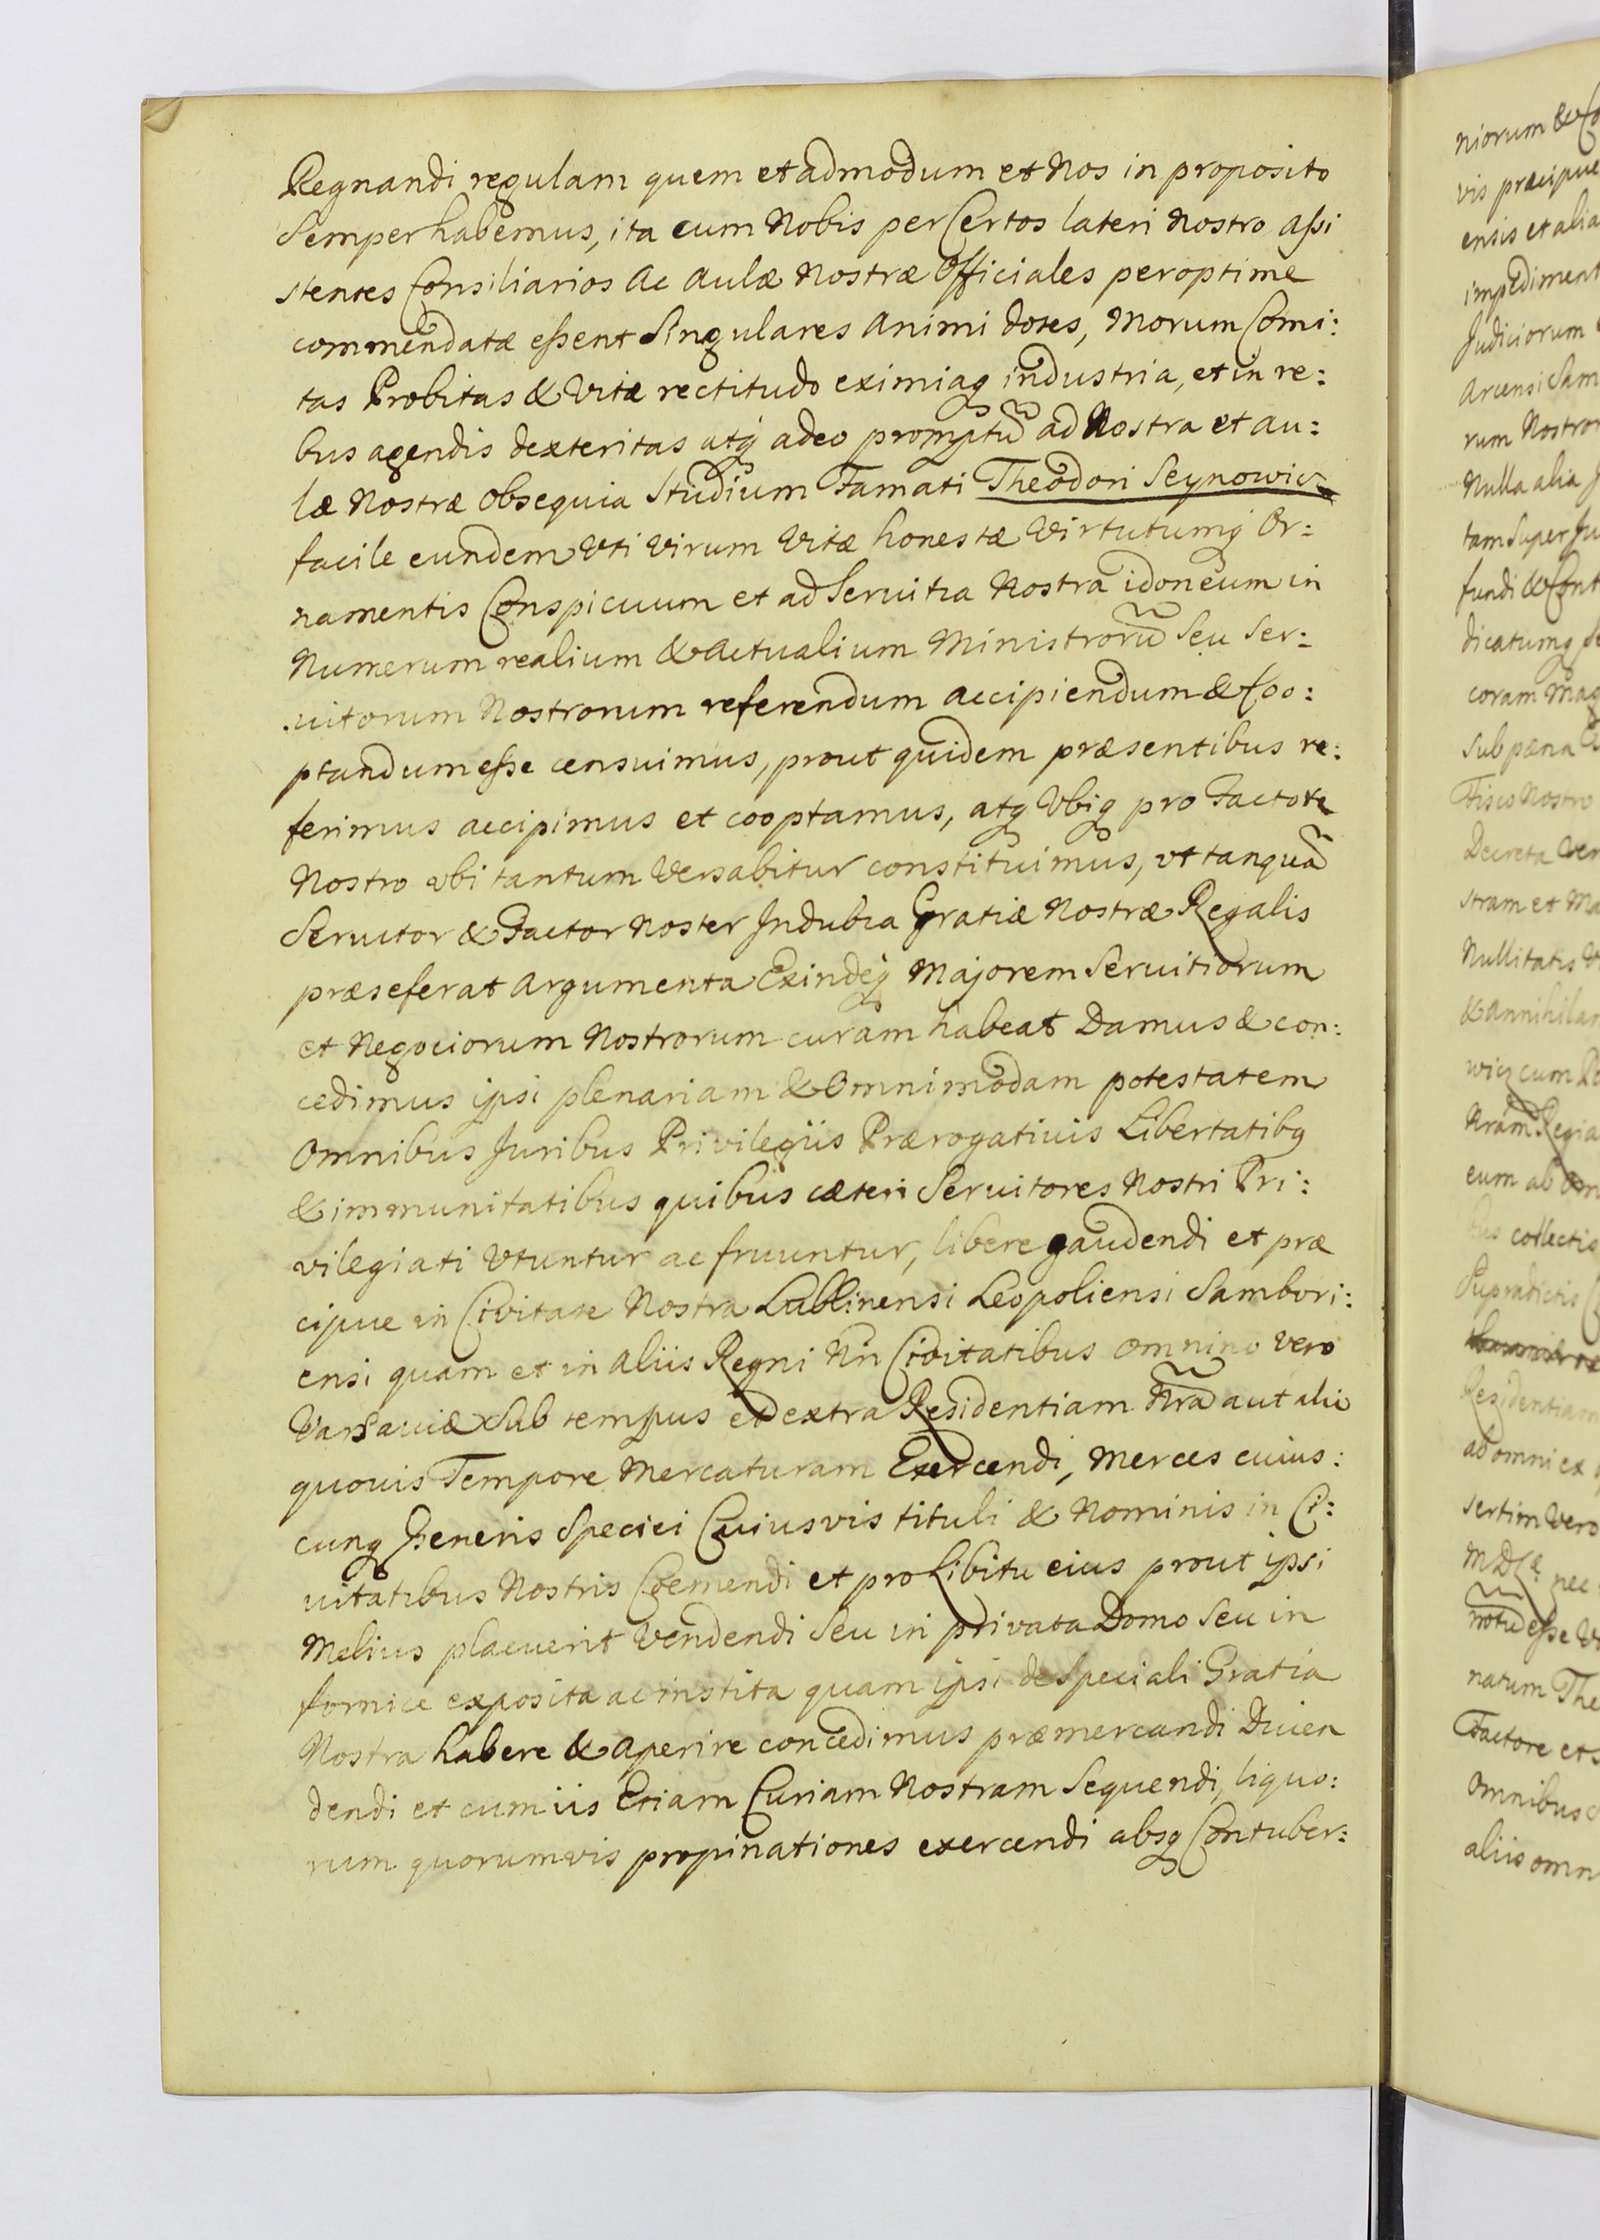 Regnandi regulam quem et admodum et Nos in proposito
Semper habemus, ita cum Nobis per Certos lateri Nostro assi
stentes Consiliarios ac Aulæ Nostræ Officiales peroptime
commendatæ essent Singulares Animi dotes, Morum Comi:
tas Probitas & Vitæ rectitudo eximiaq industria, et in re:
bus agendis dexteritas atq adeo promptũ ad Nostra et au:
læ Nostræ Obsequia Studium Famati Theodori Seynowicz
facile eundem Vti Virum Vitæ honestæ Virtutumq Or:
namentis Conspicuum et ad Seruitia Nostra idoneum in
Numerum realium & Actualium Ministrorũ Seu Ser:
uitorum Nostrorum referendum accipiendum & Coo:
ptandum esse censuimus, prout quidem præsentibus re:
ferimus accipimus et cooptamus, atq Vbiq pro Factore
Nostro vbi tantum Versabitur constituimus, vt tanquã
Seruitor & Factor Noster Indubia Gratiæ Nostræ Regalis
præseferat Argumenta Exindeq Majorem Seruitiorum
et Negociorum Nostrorum curam habeat Damus & con:
cedimus ipsi plenariam & Omnimodam potestatem
Omnibus Juribus Privilegiis Prærogativis Libertatibq
& immunitatibus quibus cæteri Seruitores Nostri Pri:
vilegiati Vtuntur ac fruuntur, libere gaudendi et præ
cipue in Civitate Nostra Lublinensi Leopoliensi Sambori:
ensi quam et in aliis Regni Nri Civitatibus omnino vero
Varsaviæ Sub tempus et extra Residentiam Nrã aut alio
quovis Tempore Mercaturam Exercendi, Merces cuius:
cunq Generis Speciei Cuiusvis tituli & Nominis in Ci:
uitatibus Nostris Coemendi et pro Libitu eius prout ipsi
Melius placuerit Vendendi Seu in privata Domo Seu in
fornice exposita ac instita quam ipsi de Speciali Gratia
Nostra habere & Aperire concedimus præmercandi Diuen
dendi et cum iis Etiam Curiam Nostram Sequendi, liquo:
rum quorumvis propinationes exercendi absq Contuber:
niorum & Co
vis præcipue
ensis et alia
impediment
Judiciorum
Arcensi Sam
rum Nostror
Nulla alia J
tam Super Ju
fundi & Cont
dicatumq se
coram Mag
Sub pæna
Fisco Nostro
Decreta Ver
stram et Ma
Nullitatis
& Annihilar
wicz cum
Nrãm Regia
eum ab
bus collectis
Supradictis
Residentiam
ab omni ex
sertim Vero
M D L nec
notũ esse
narum The
Factore et
Omnibus
aliis omn